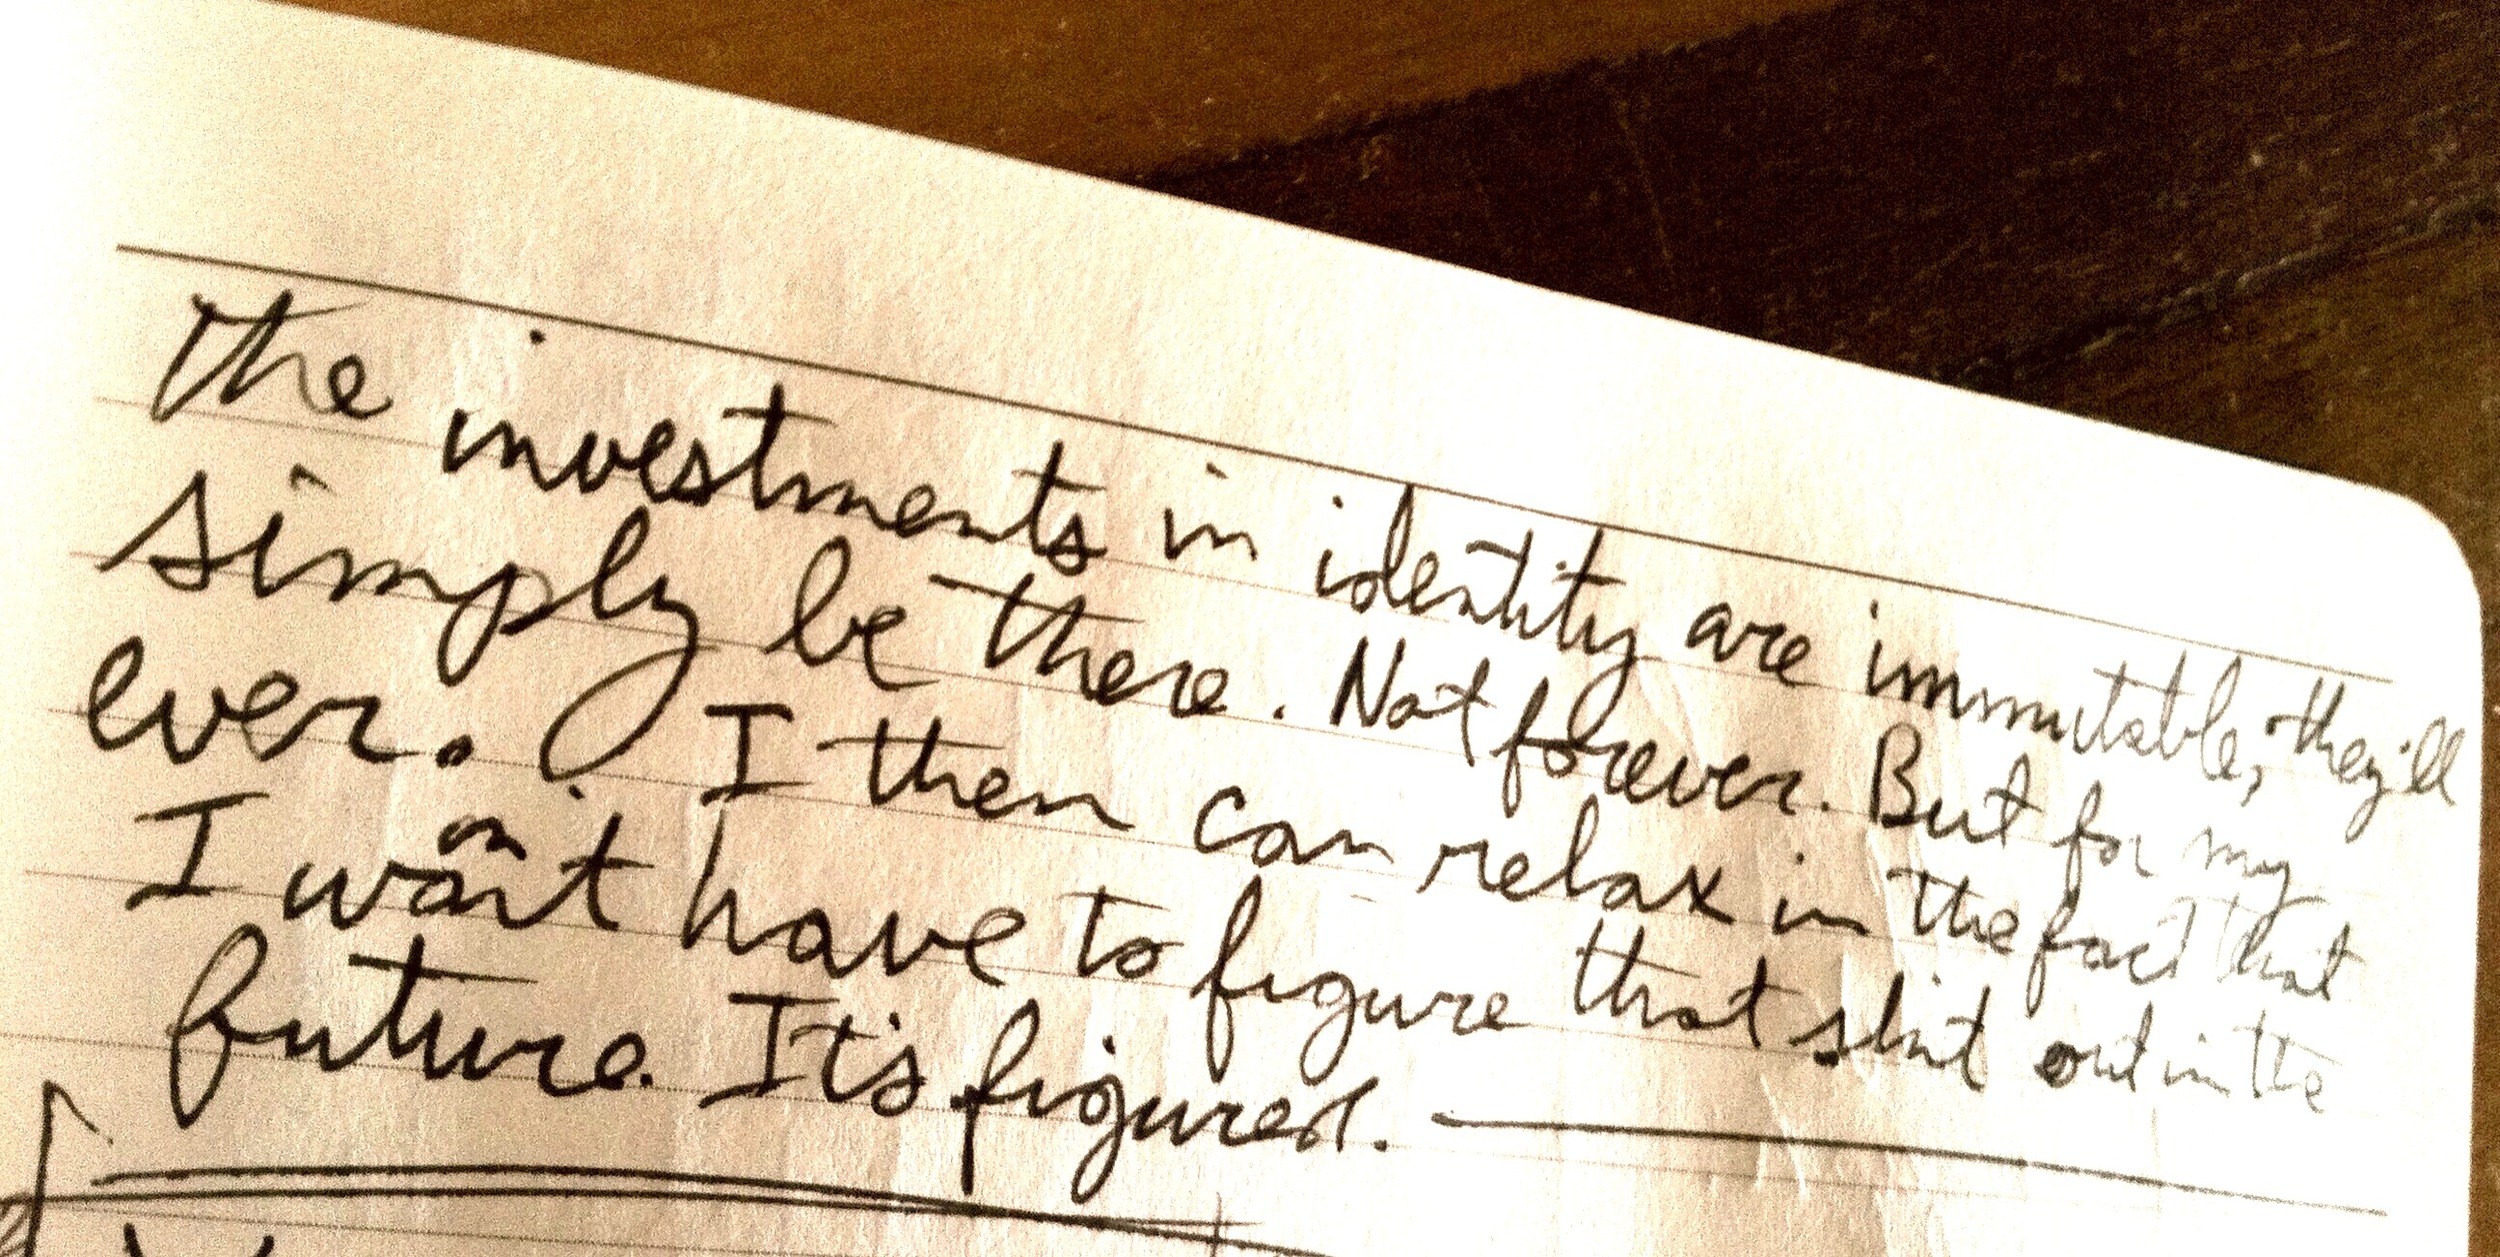 The investments in identity are immutable, they'll
simply be there. Not forever. But for my
ever. I then can relax in the fact that
I won't have to figure that shit out in the
future. It's figured.